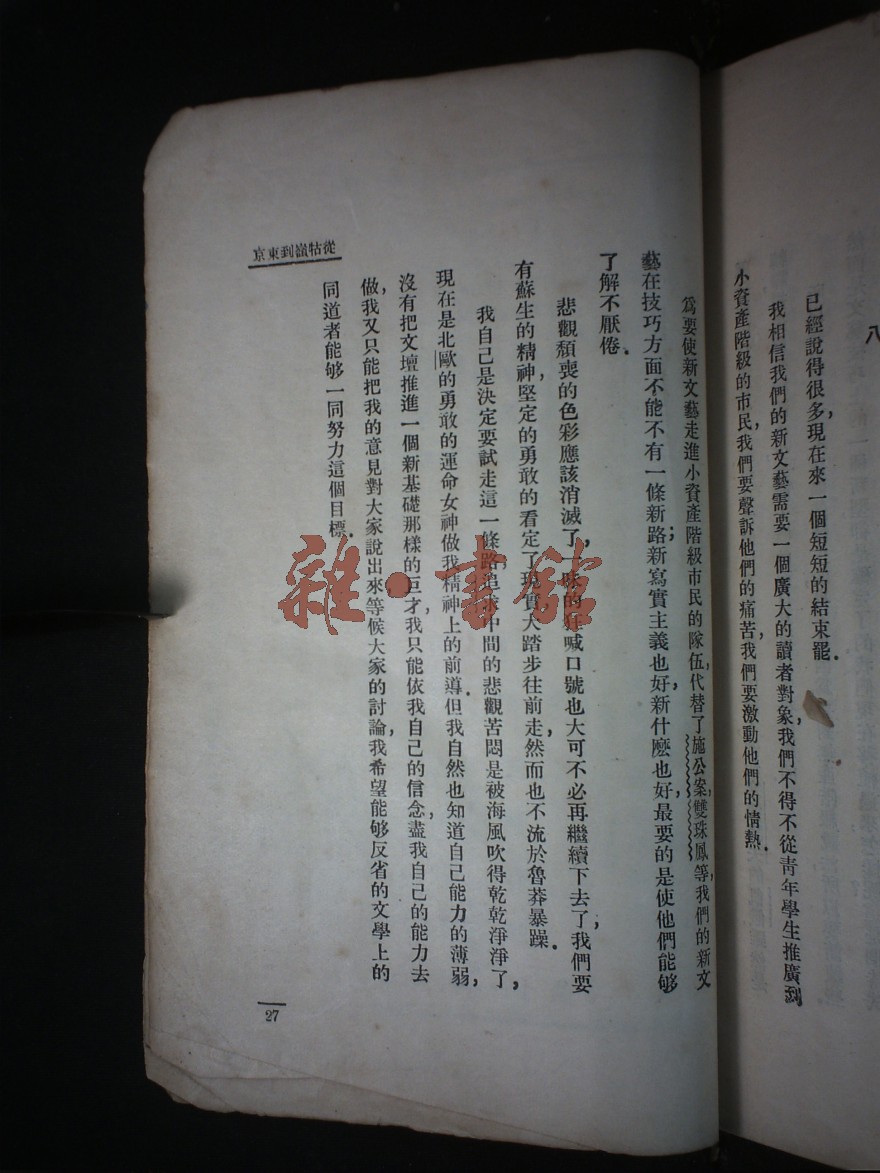 八
已經說得很多，現在來一個短短的結束罷．
我相信我們的新文藝需要一個廣大的讀者對象，我們不得不從靑年學生推廣到
小資產階級的市民，我們要聲訴他們的痛苦，我們要激動他們的情熱．
爲要使新文藝走進小資產階級市民的隊伍，代替了施公案，雙珠鳳等，我們的新文
藝在技巧方面不能不有一條新路；新寫實主義也好，新什麽也好，最要的是使他們能够
了解不厭倦．
悲觀頹喪的色彩應該消滅了，一味的狂喊口號也大可不必再繼續下去了，我們要
有蘇生的精神，堅定的勇敢的看定了現實，大踏步往前走，然而也不流於魯莽暴躁．
我自己是決定要試走這一條路；追求中間的悲觀苦悶是被海風吹得乾乾淨淨了，
現在是北歐的勇敢的運命女神做我精神上的前導．但我自然也知道自己能力的薄弱，
沒有把文壇推進一個新基礎那樣的巨才，我只能依我自己的信念，盡我自己的能力去
做，我又只能把我的意見對大家說出來，等候大家的討論，我希望能够反省的文學上的
同道者能够一同努力這個目標．
從牯嶺到東京
27
雜·書館